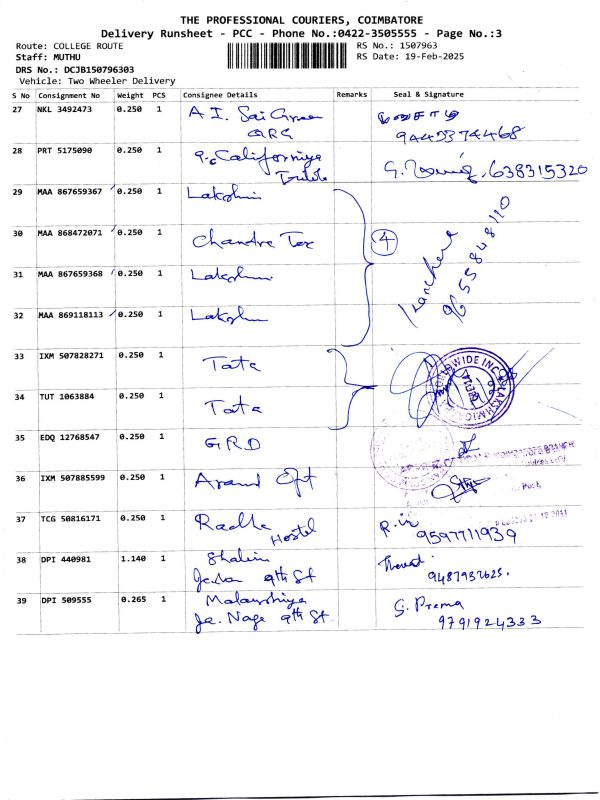 THE PROFESSIONAL COURIERS, COIMBATORE
Delivery Runsheet - PCC - Phone No.:0422-3505555 - Page No.:3
Route: COLLEGE ROUTE RS No.: 1507963
Staff: MUTHU RS Date: 19-Feb-2025
DRS No.: DCJB150796303
Vehicle: Two Wheeler Delivery
S No Consignment No Weight PCS Consignee Details Remarks Seal & Signature
27 NKL 3492473 0.250 1 A I. Sai
GRG 9445374468
28 PRT 5175090 0.250 1 Californiya 638315320
29 MAA 867659367 0.250 1 Lakshmi
30 MAA 868472071 0.250 1 Chandra Tex 4 9655848110
31 MAA 867659368 0.250 1 Lakshmi
32 MAA 869118113 0.250 1 Lakshmi
33 IXM 507828271 0.250 1 Tata
34 TUT 1063884 0.250 1 Tata
35 EDQ 12768547 0.250 1 GRD
36 IXM 507885599 0.250 1 Anand
37 TCG 50816171 0.250 1 Radha
Hostel 9597711939
38 DPI 440981 1.140 1 Shalini
9th St 9487937625.
39 DPI 509555 0.265 1 G. Prema
Ja. Nagr 9th St 9791924333